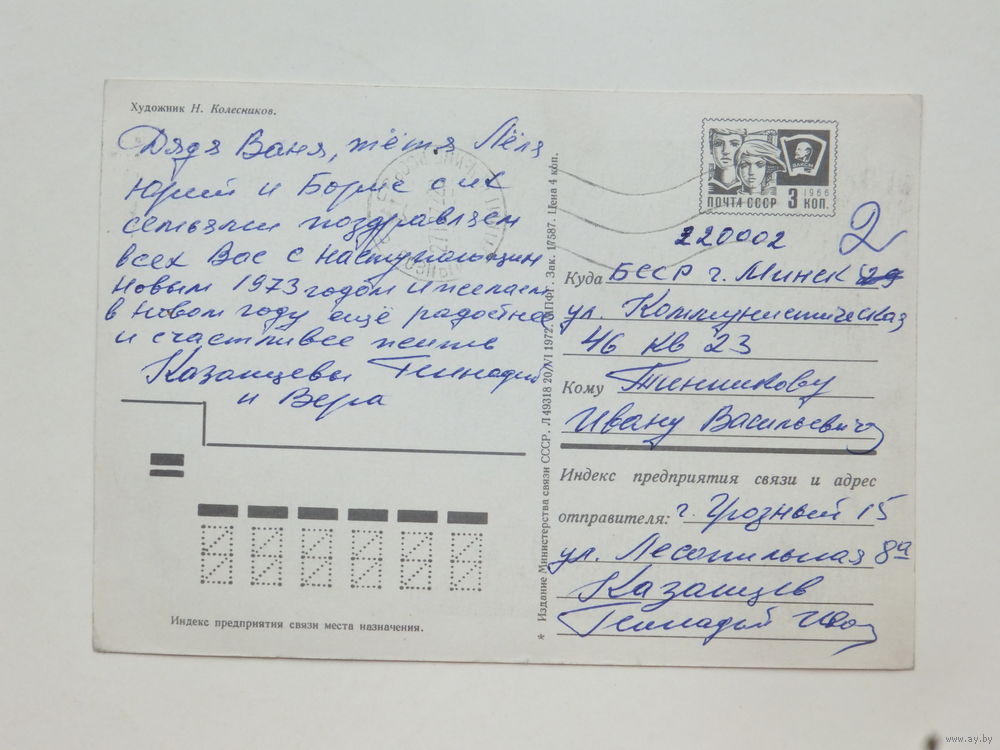 Художник Н. Колесников.
Дядя Ваня, тётя Лёля
Юрий и Борис с их
семьями поздравляем
всех Вас с наступающим
новым 1973 годом и желаем
в новом году ещё радостнее
и счастливее жить
Казанцевы Геннадий
и Вера
Индекс предприятия связи места назначения.
* Издание Министерства связи СССР. Л 49318 20/VI 1972. МПФГ. Зак. 17587. Цена 4 коп.
ВЛКСМ
1966
ПОЧТА СССР 3 КОП.
2
220002
Куда БССР г. Минск
ул. Коммунистическая
46 кв 23
Кому Тинникову
Ивану Васильевичу
Индекс предприятия связи и адрес
отправителя: г. Грозный 15
ул. Лесопильная 8а
Казанцев
Геннадий Ив
www.ay.by